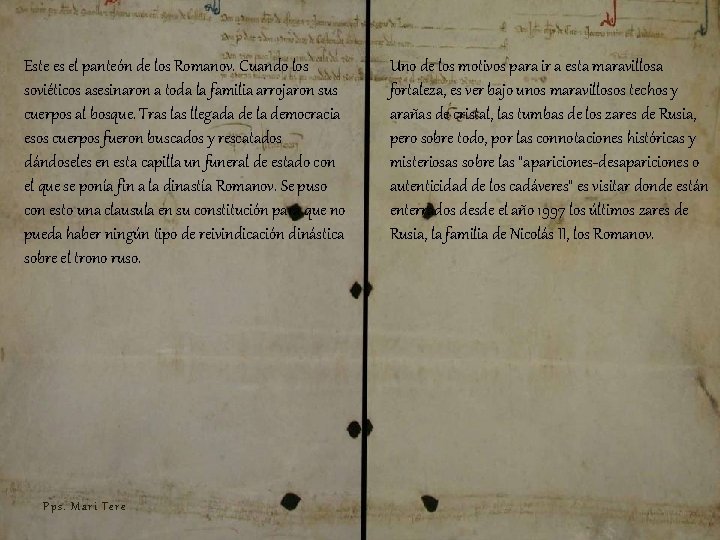 Este es el panteón de los Romanov. Cuando los
soviéticos asesinaron a toda la familia arrojaron sus
cuerpos al bosque. Tras las llegada de la democracia
esos cuerpos fueron buscados y rescatados
dándoseles en esta capilla un funeral de estado con
el que se ponía fin a la dinastía Romanov. Se puso
con esto una clausula en su constitución para que no
pueda haber ningún tipo de reivindicación dinástica
sobre el trono ruso.
Pps. Mari Tere
Uno de los motivos para ir a esta maravillosa
fortaleza, es ver bajo unos maravillosos techos y
arañas de cristal, las tumbas de los zares de Rusia,
pero sobre todo, por las connotaciones históricas y
misteriosas sobre las "apariciones-desapariciones o
autenticidad de los cadáveres" es visitar donde están
enterrados desde el año 1997 los últimos zares de
Rusia, la familia de Nicolás II, los Romanov.